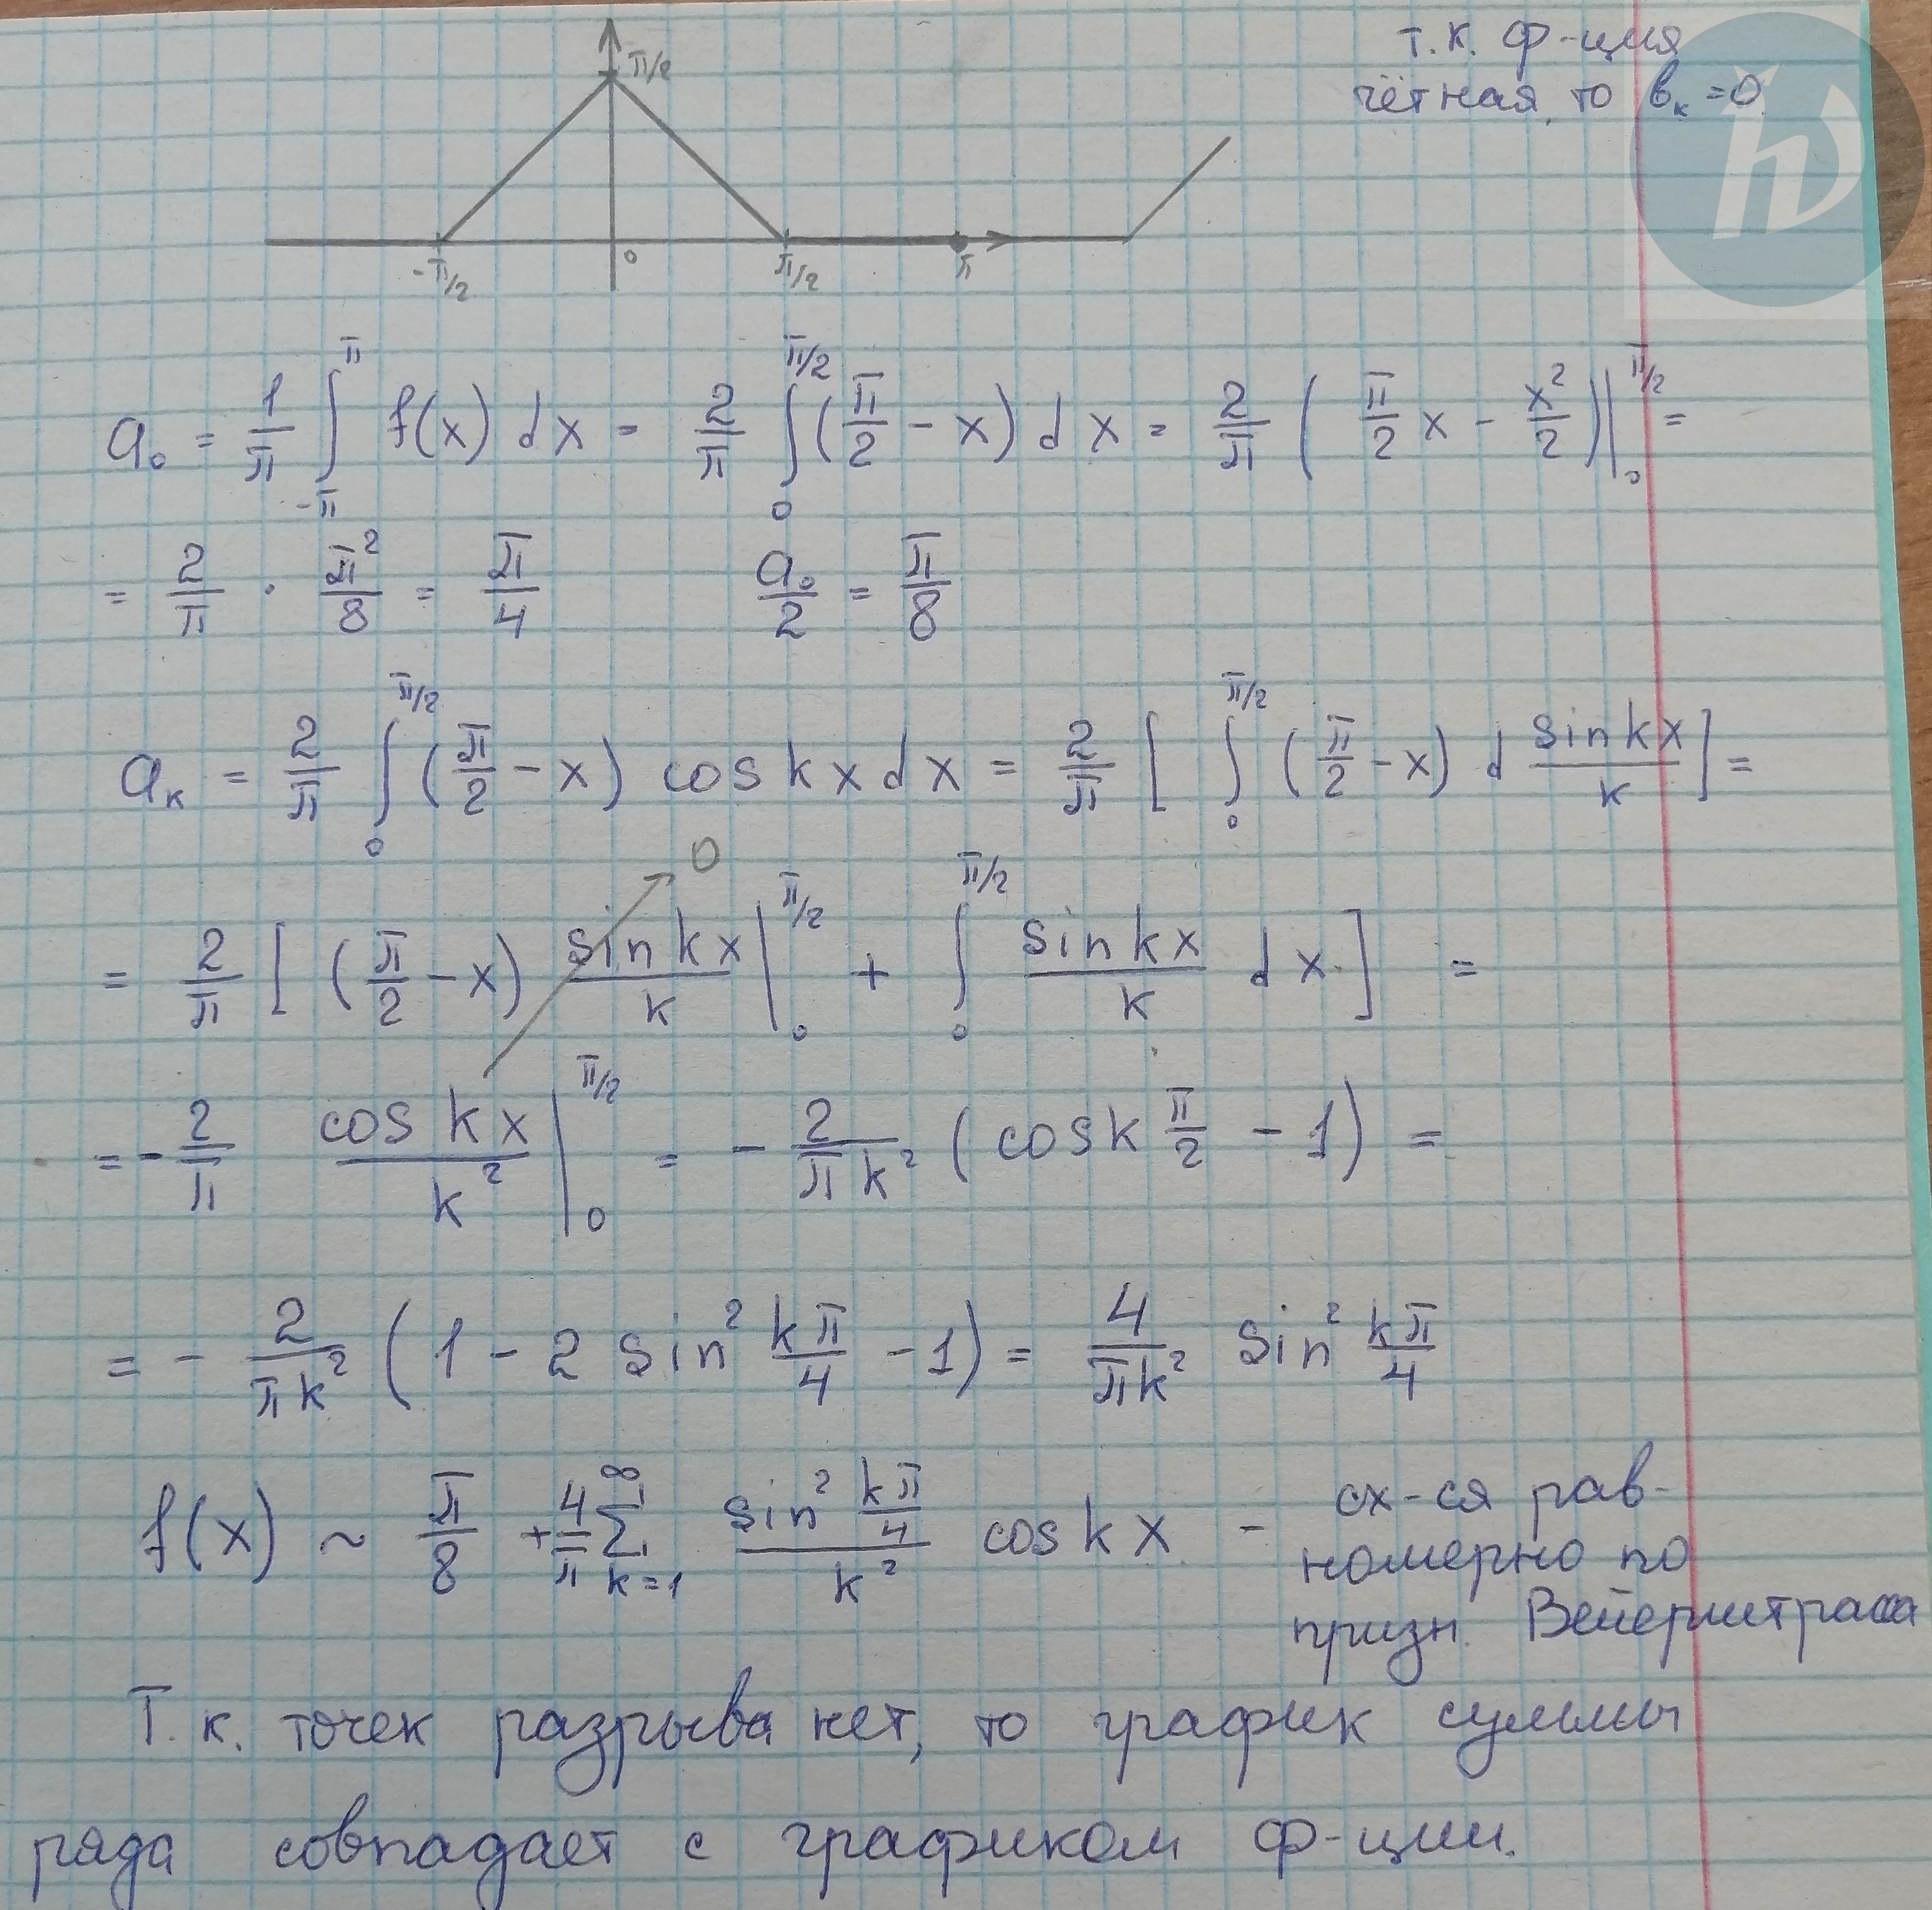 т.к. ф-ция
чётная, то bₖ = 0
π/2
-π/2 0 π/2 π
a₀ = 1/π ∫_{-π}^{π} f(x) dx = 2/π ∫_0^{π/2} (π/2 - x) dx = 2/π (π/2 x - x²/2)|_0^{π/2} =
= 2/π · π²/8 = π/4 a₀/2 = π/8
aₖ = 2/π ∫_0^{π/2} (π/2 - x) cos kx dx = 2/π [ ∫_0^{π/2} (π/2 - x) d sin kx/k ] =
= 2/π [ (π/2 - x) sin kx/k |_0^{π/2} → 0 + ∫_0^{π/2} sin kx/k dx ] =
= - 2/π cos kx/k² |_0^{π/2} = - 2/(πk²) (cos k π/2 - 1) =
= - 2/(πk²) (1 - 2 sin² kπ/4 - 1) = 4/(πk²) sin² kπ/4
f(x) ~ π/8 + 4/π ∑_{k=1}^{∞} (sin² kπ/4)/k² cos kx - сх-ся рав-
номерно по
призн. Вейерштрасса
Т.к. точек разрыва нет, то график суммы
ряда совпадает с графиком ф-ции.